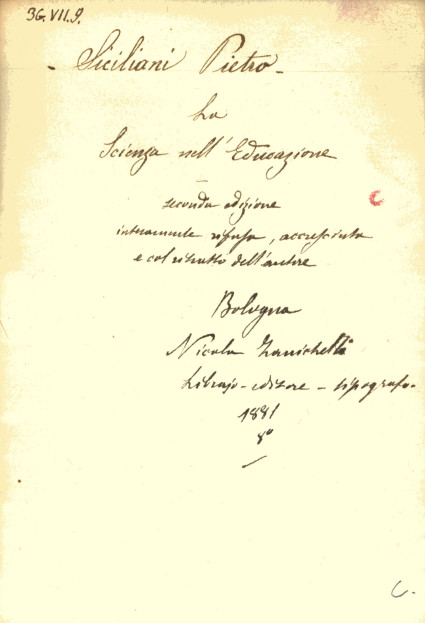 36.VII.9.
- Siciliani Pietro -
La
Scienza nell' Educazione
—
seconda edizione
interamente rifusa, accresciuta
e col ritratto dell'autore
Bologna
Nicola Zanichelli
Librajo-editore-tipografo-
1881
8º
C
C.